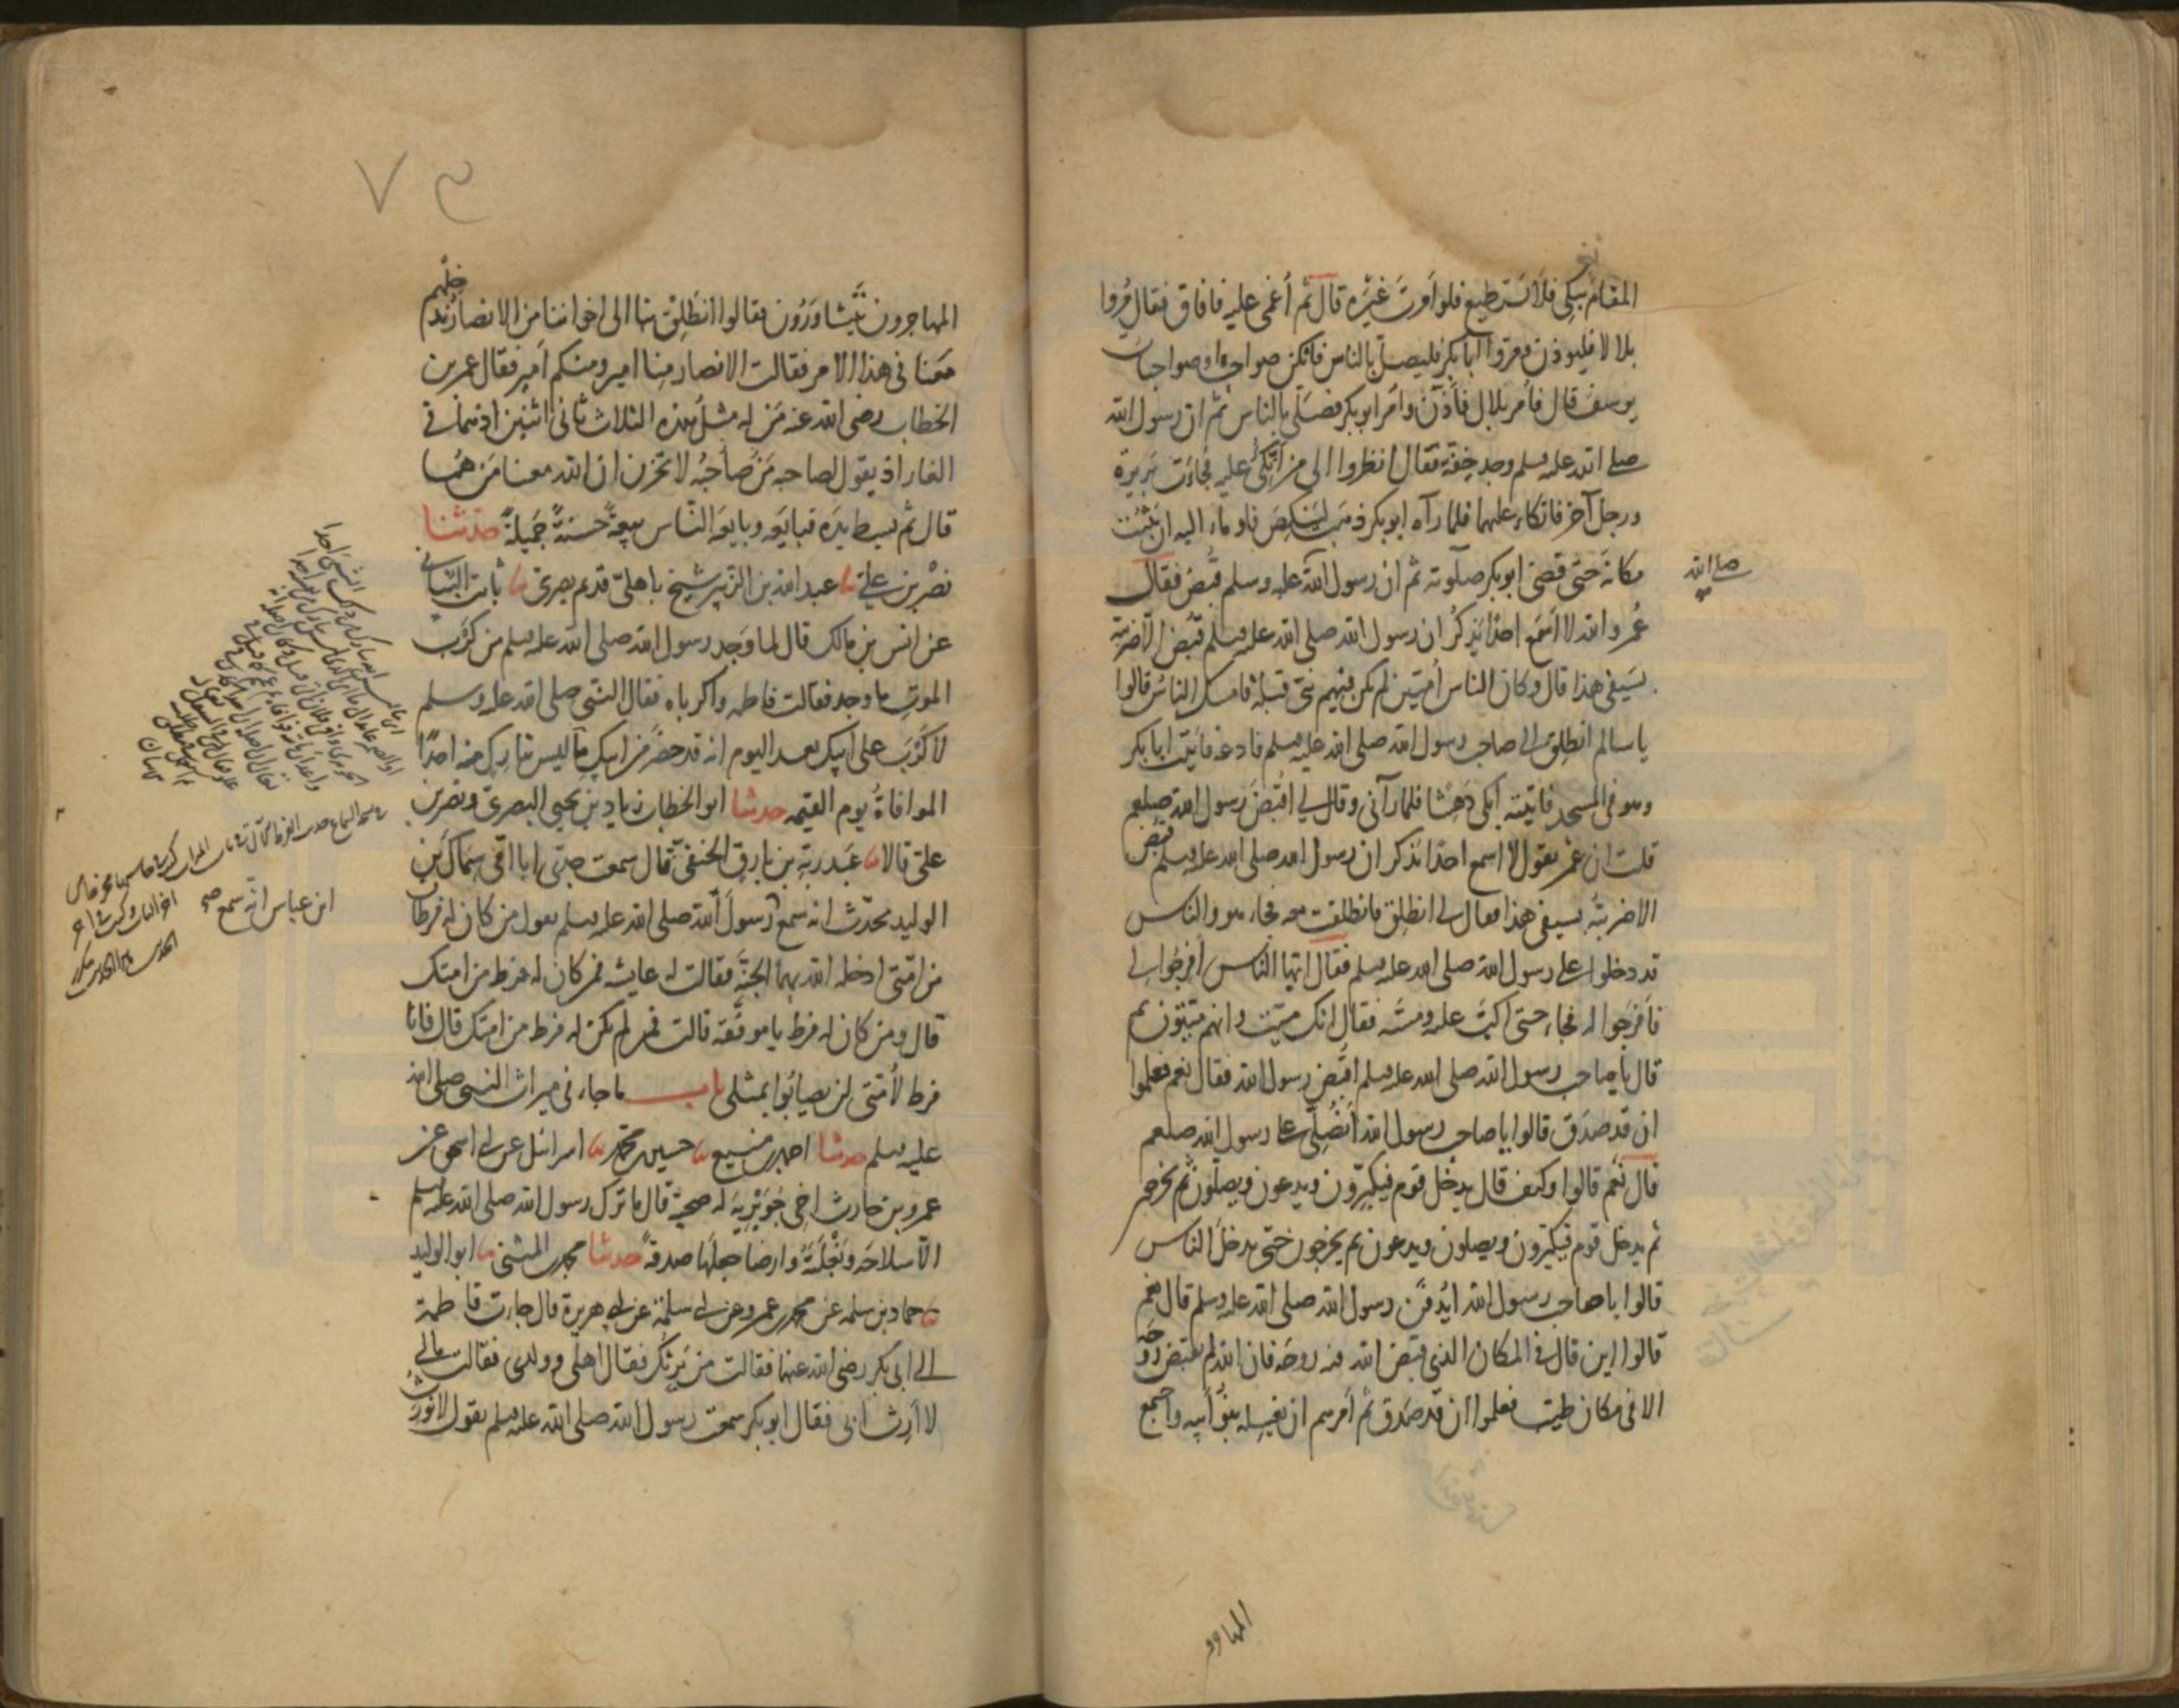 المقام يبكي فلا يستطيع فلو امرت غيره قال ثم أغمي عليه فافاق فقال مُروا
بلالا فليوذن ومروا ابا بكر فليصل بالناس فانكن صواحب او صواحبات
يوسف قال فأمر بلال فأذّن وأمر ابو بكر فصلى بالناس ثم ان رسول الله
صلى الله عليه وسلم وجد خفة فقال انظروا الى من أتكئ عليه فجاءت بريرة
ورجل آخر فاتكاء عليهما فلما رآه ابو بكر ذهب لينكص فاوماء اليه ان يثبت
مكانه حتى قضى ابو بكر صلوته ثم ان رسول الله عليه وسلم قبض فقال
صلى الله
عُمر والله لا اسمع احدا يذكر ان رسول الله صلى الله عليه وسلم قبض الا ضربته
بسيفي هذا قال وكان الناس أميّين لم يكن فيهم نبي قبله فامسك الناس قالوا
يا سالم انطلق الى صاحب رسول الله صلى الله عليه وسلم فادعه فاتيت ابا بكر
وهو في المسجد فاتيته أبكي دهشا فلما رآني وقال لي اقبض رسول الله صلعم
قلت ان عمر يقول لا اسمع احدا يذكر ان رسول الله صلى الله عليه وسلم قبض
الا ضربته بسيفي هذا فقال لي انطلق فانطلقت معه فجاء هو والناس
قد دخلوا على رسول الله صلى الله عليه وسلم فقال ايها الناس أفرجوا لي
فأفرجوا له فجاء حتى اكبّ عليه ومسّه فقال انك ميّت وانهم ميّتون ثم
قال يا صاحب رسول الله صلى الله عليه وسلم اقبض رسول الله فقال نعم فعلموا
ان قد صدق قالوا يا صاحب رسول الله أنصلي على رسول الله صلعم
قال نعم قالوا وكيف قال يدخل قوم فيكبّرون ويدعون ويصلون ثم يخرجون
ثم يدخل قوم فيكبّرون ويصلون ويدعون ثم يخرجون حتى يدخل الناس
قالوا يا صاحب رسول الله ايُدفن رسول الله صلى الله عليه وسلم قال نعم
قالوا اين قال في المكان الذي قبض الله فيه روحه فان الله لم يقبض روحه
الا في مكان طيّب فعلموا ان قد صدق ثم أمرهم ان يغسله بنو أبيه واجتمع
٧٣
المهاجرون يتشاورون فقالوا انطلق بنا الى اخواننا من الانصار ندخلهم
معنا في هذا الامر فقالت الانصار منا امير ومنكم أمير فقال عمر بن
الخطاب رضي الله عنه من له مثل هذه الثلاث ثاني اثنين اذ هما في
الغار اذ يقول لصاحبه مَن صاحبُه لا تحزن ان الله معنا مَن هُما
قال ثم بسط يده فبايعه وبايعه الناس بيعة حسنة جميلة حدثنا
نصر بن علي نا عبد الله بن الزبير شيخ باهلي قديم بصري نا ثابت البناني
عن انس بن مالك قال لما وجد رسول الله صلى الله عليه وسلم من كرب
الموت ما وجد فقالت فاطمه واكرباه فقال النبي صلى الله عليه وسلم
لا كرب على أبيك بعد اليوم انه قد حضر من ابيك ما ليس بتارك منه احدًا
الموافاة يوم القيمه حدثنا ابو الخطاب زياد بن يحيى البصري ونصر بن
علي قالا نا عبد ربه بن بارق الحنفي قال سمعت جدي ابا امي سماك بن
الوليد يحدّث انه سمع رسول الله صلى الله عليه وسلم يقول من كان له فرطان
ابن عباس انه سمع صح
من امتي ادخله الله بهما الجنة فقالت له عايشه فمن كان له فرط من امتك
قال ومن كان له فرط يا موفقة قالت فمن لم يكن له فرط من امتك قال فانا
فرط لأمتي لن يصابوا بمثلي باب ما جاء في ميراث النبي صلى الله
عليه وسلم حدثنا احمد بن منيع نا حسين بن محمد نا اسرائيل عن ابي اسحق عن
عمرو بن حارث اخي جُوَيرية له صحبة قال ما ترك رسول الله صلى الله عليه وسلم
الا سلاحه وبغلته وارضا جعلها صدقة حدثنا محمد بن المثنى نا ابو الوليد
نا حماد بن سلمه عن محمد بن عمرو عن ابي سلمة عن ابي هريرة قال جاءت فاطمة
الى ابي بكر رضي الله عنهما فقالت من يرثك فقال اهلي وولدي فقالت مالي
لا أرث ابي فقال ابو بكر سمعت رسول الله صلى الله عليه وسلم يقول لا نورث